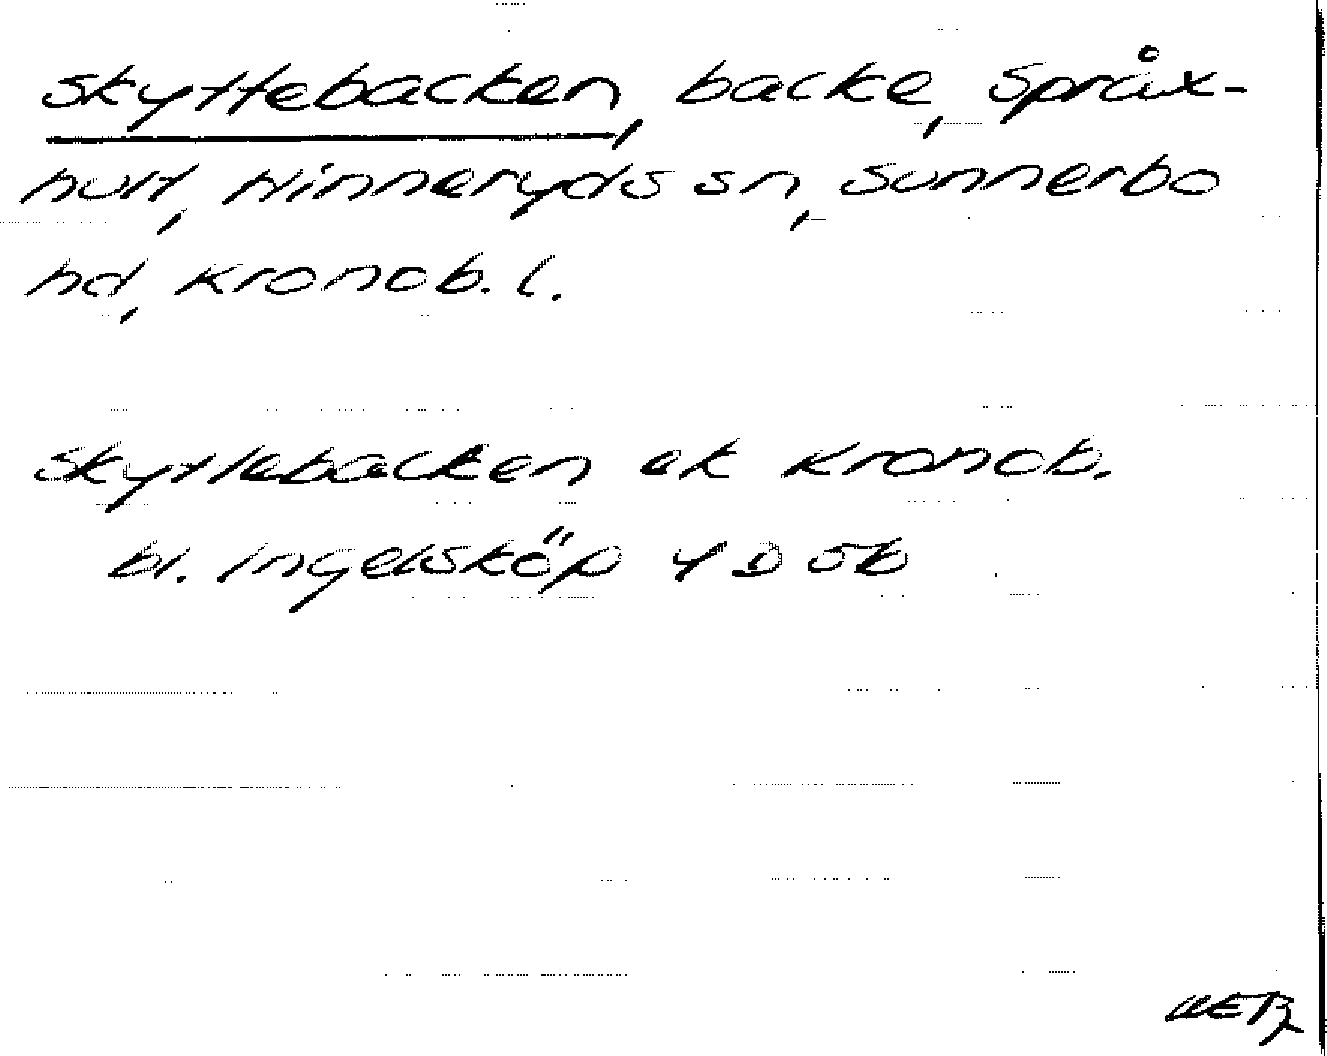 Skyttebacken, backe, Språx-
hult, Hinneryds sn, Sunnerbo
hd, Kronob. l.
Skyttebacken ek Kronob.
bl. Ingelsköp 4 D 5b